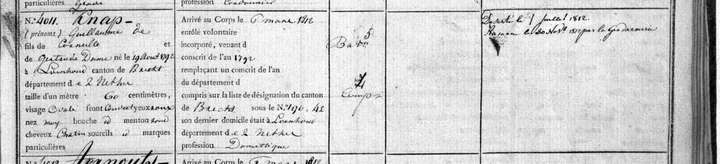 particulières
profession Cordonnier
N.º 4011. Knap
(prénoms) Guillaume
fils de Corneille
et Gertrude Dome né le 19 Août 1792
à Loenhout canton de Brecht
département de 2 Nethes
taille d'un mètre 60 centimètres,
visage Ovale front Couvert yeux roux
nez moy bouche id menton rond
cheveux Chatin sourcils id marques
particulières
Arrivé au Corps le 6 mars 1812
enrôlé volontaire
incorporé, venant d
conscrit de l'an 1792
remplaçant un conscrit de l'an
du département d
compris sur la liste de désignation du canton
de Brecht sous le N.º 196. 41
son dernier domicile était à Loenhout
département de 2 Nethes
profession Domestique
5
Baton
4
Comp.e
Déserté le 7 Juillet 1812
Ramené le 20 par la Gendarmerie
Arrivé au Corps le 6 mars 1812